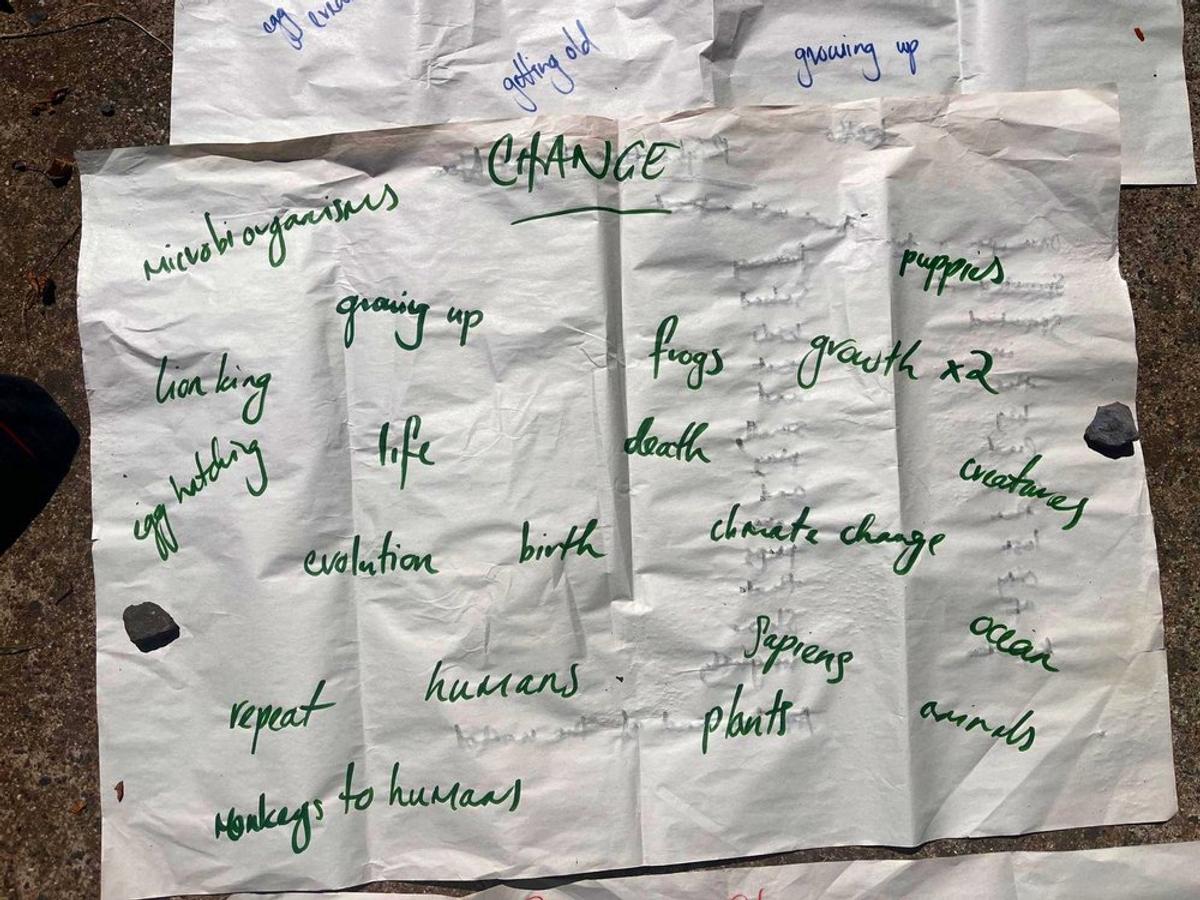 egg
getting old
growing up
CHANGE
Microbiorganisms
puppies
growing up
frogs
growth x2
lion king
life
death
egg hatching
creatures
climate change
evolution
birth
Sapiens
ocean
humans
repeat
plants
animals
Monkeys to humans